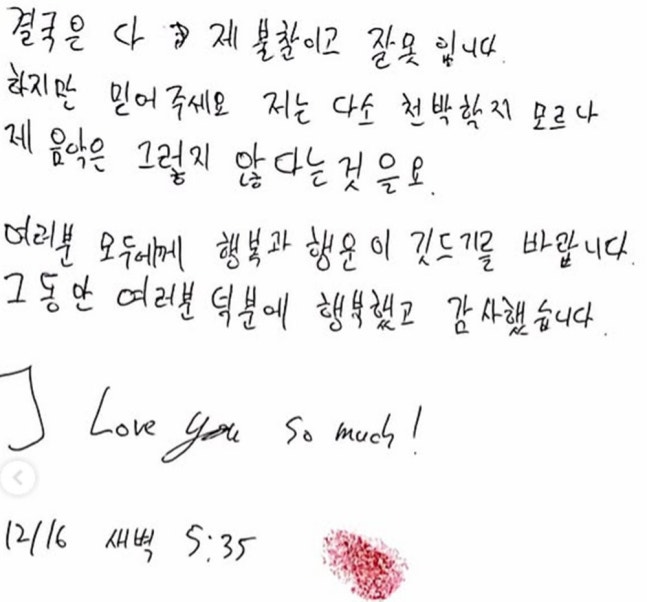 결국은 다 제 불찰이고 잘못 입니다.
하지만 믿어주세요 저는 다소 천박할지 모르나
제 음악은 그렇지 않다는것을요.
여러분 모두에게 행복과 행운이 깃드기를 바랍니다.
그동안 여러분 덕분에 행복했고 감사했습니다.
I Love you so much!
12/16 새벽 5:35